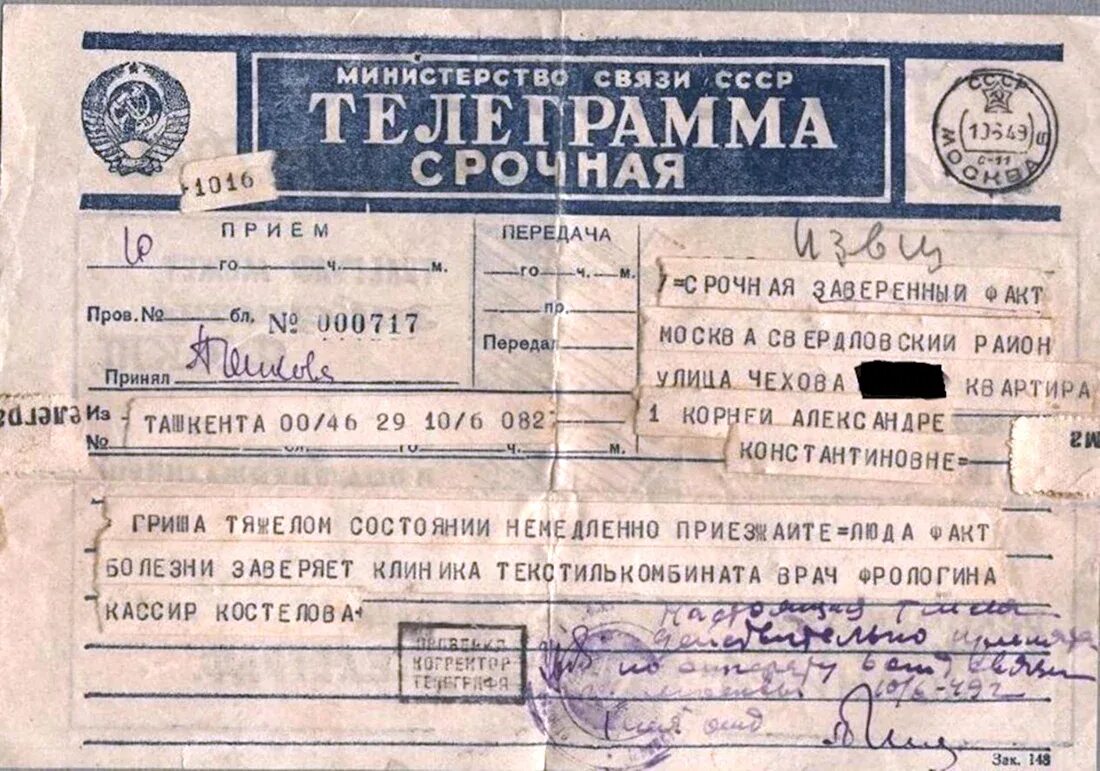 МИНИСТЕРСТВО СВЯЗИ СССР
ТЕЛЕГРАММА
СРОЧНАЯ
СССР
10649
С-11
МОСКВА
1016
ПРИЕМ
ПЕРЕДАЧА
Извещ
го ч. м.
го ч. м.
/=СРОЧНАЯ ЗАВЕРЕННЫЙ ФАКТ
Пров.№ бл. № 000717
пр.
МОСКВА СВЕРДЛОВСКИЙ РАЙОН
Передал
Принял
УЛИЦА ЧЕХОВА КВАРТИРА
Из ТАШКЕНТА 00/46 29 10/6 082
1 КОРНЕЙ АЛЕКСАНДРЕ
№ бл. го ч. м.
КОНСТАНТИНОВНЕ=
ГРИША ТЯЖЕЛОМ СОСТОЯНИИ НЕМЕДЛЕННО ПРИЕЗЖАЙТЕ=ЛЮДА ФАКТ
БОЛЕЗНИ ЗАВЕРЯЕТ КЛИНИКА ТЕКСТИЛЬКОМБИНАТА ВРАЧ ФРОЛОГИНА
КАССИР КОСТЕЛОВА+
Настоящая
действительно принята
по аппарату связи
10/6-49г
КОРРЕКТОР
ТЕЛЕГРАФА
Зак. 148